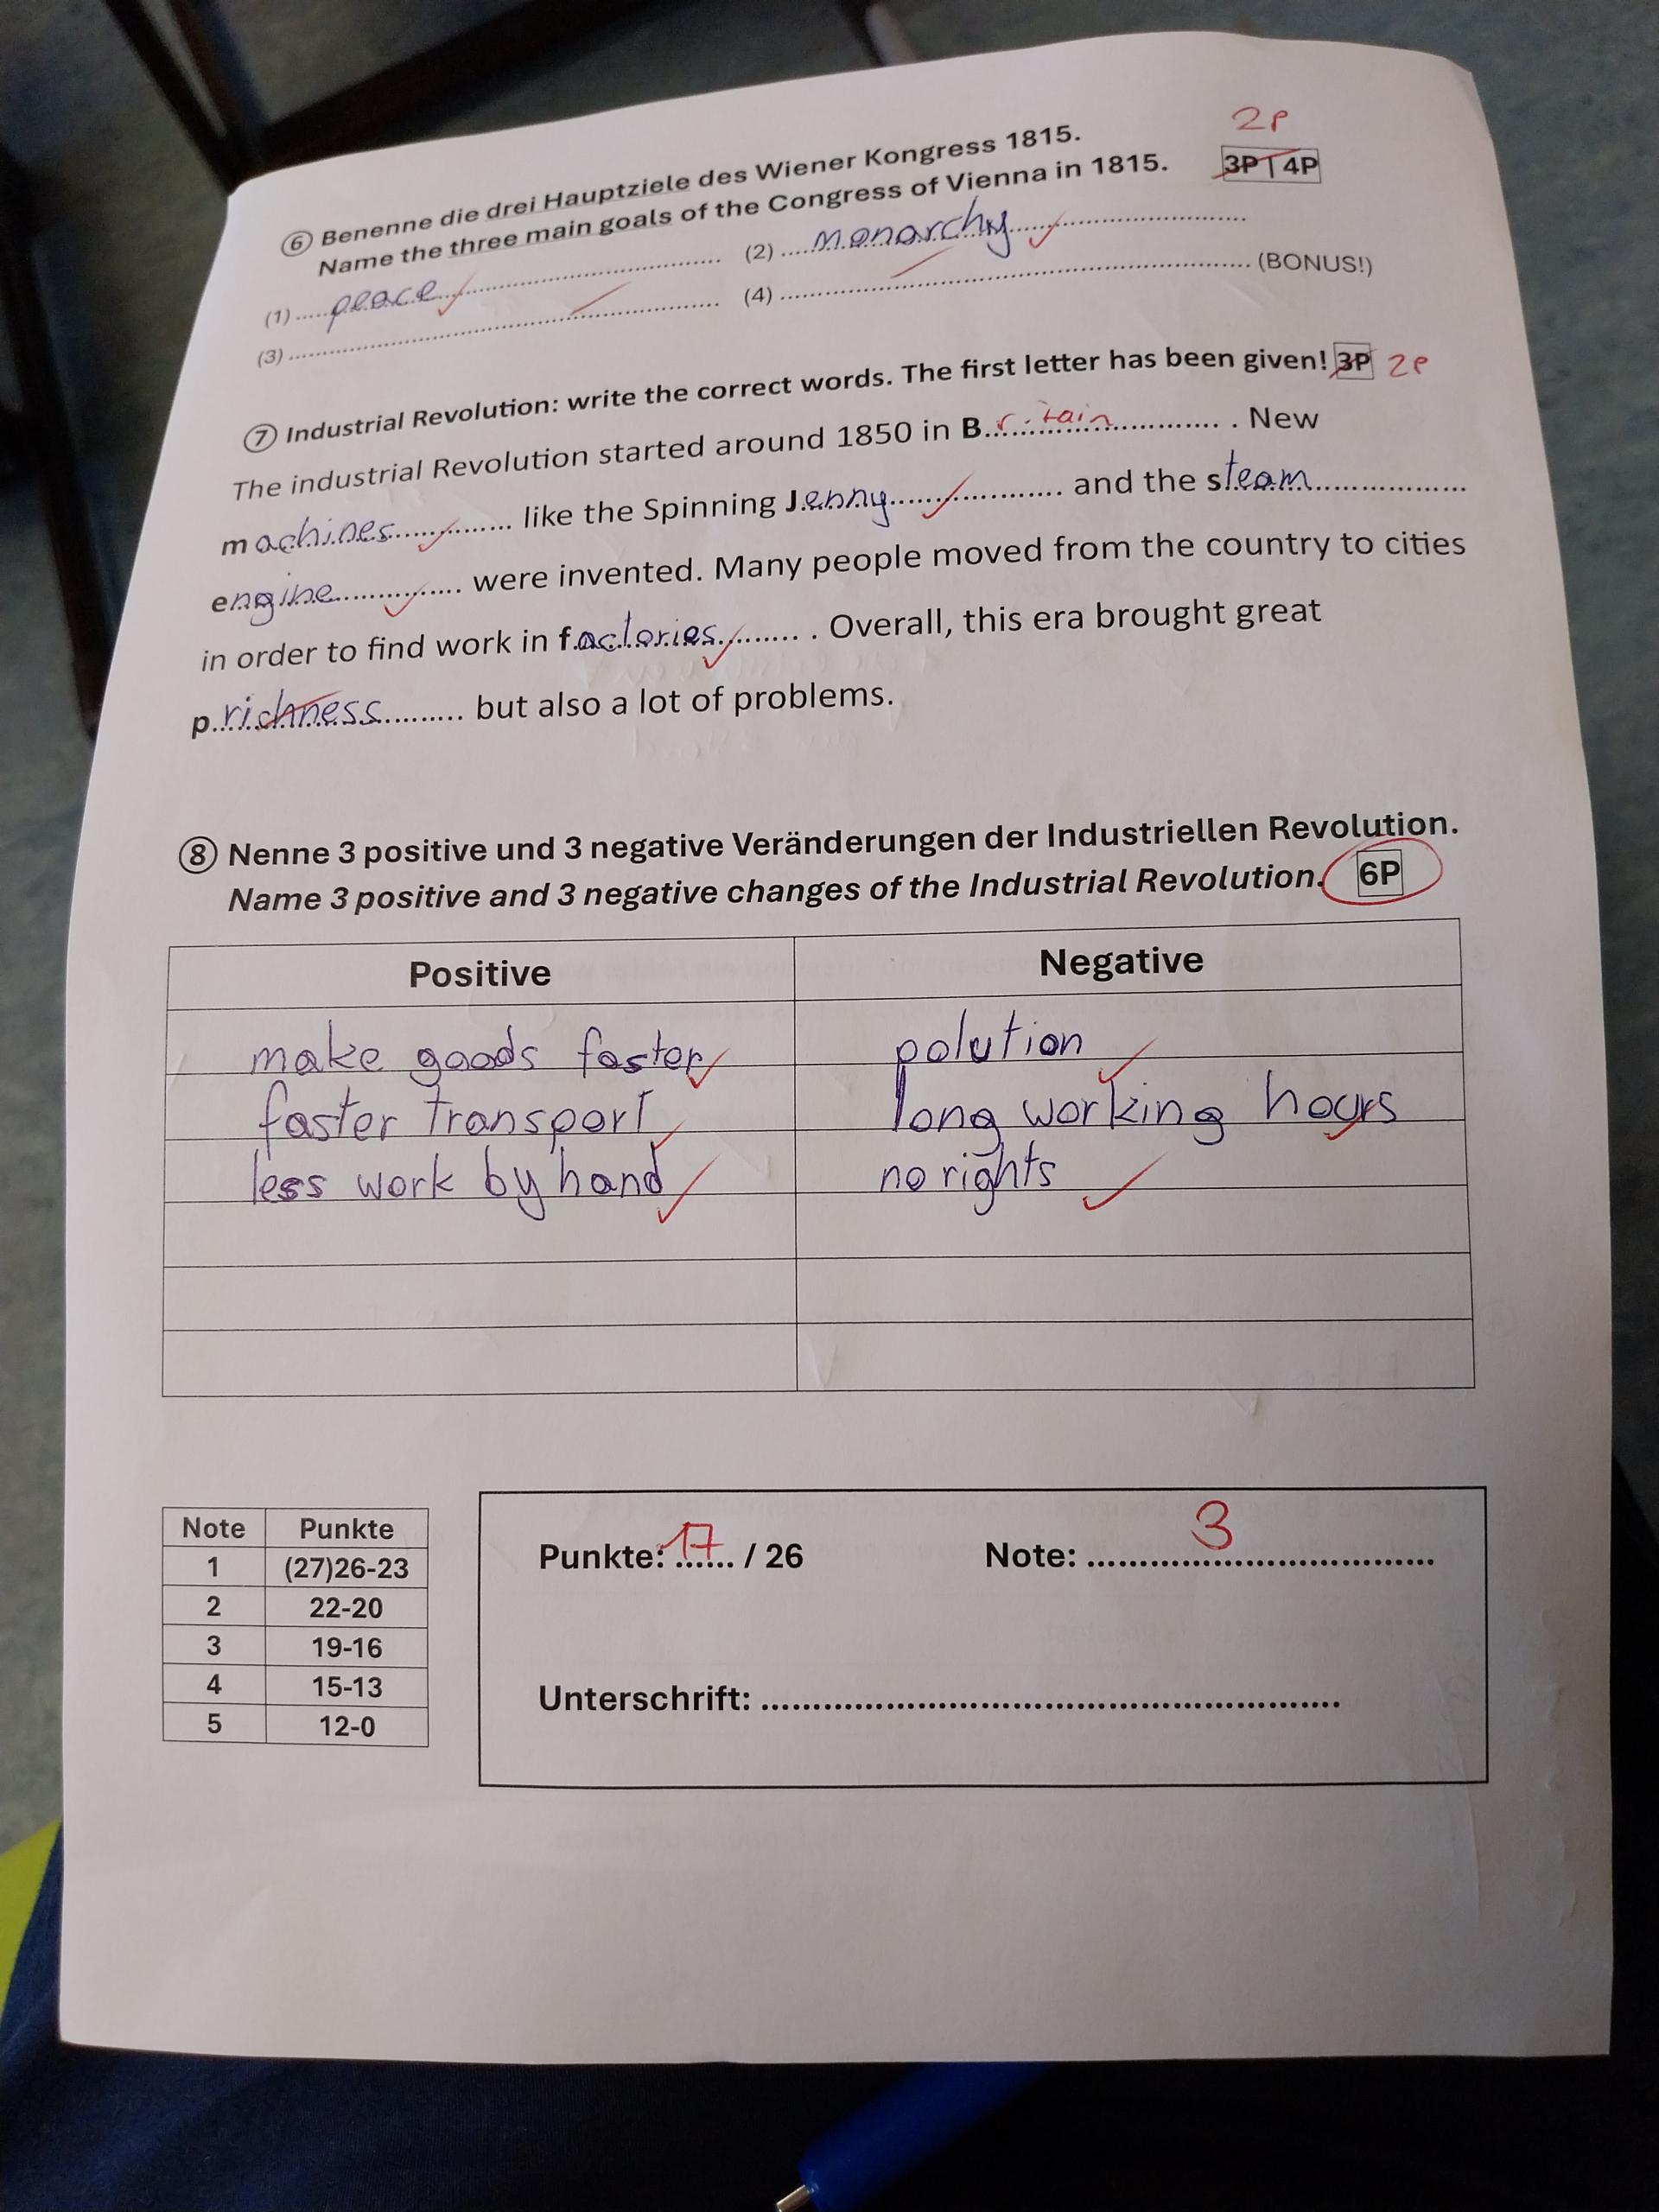 2P
⑥ Benenne die drei Hauptziele des Wiener Kongress 1815.
Name the three main goals of the Congress of Vienna in 1815. 3P | 4P
(1) ..... peace .............................. (2) .... monarchy ..............................
(3) .................................................. (4) .................................................. (BONUS!)
⑦ Industrial Revolution: write the correct words. The first letter has been given! 3P 2P
The industrial Revolution started around 1850 in B ritain ............... . New
machines ............ like the Spinning Jenny .................. and the steam ...............
engine ............... were invented. Many people moved from the country to cities
in order to find work in factories .......... . Overall, this era brought great
p richness .......... but also a lot of problems.
⑧ Nenne 3 positive und 3 negative Veränderungen der Industriellen Revolution.
Name 3 positive and 3 negative changes of the Industrial Revolution. 6P
Positive Negative
make goods faster polution
faster transport long working hours
less work by hand no rights
Note Punkte
1 (27)26-23
2 22-20
3 19-16
4 15-13
5 12-0
Punkte: 17 / 26 Note: 3
Unterschrift: ............................................................